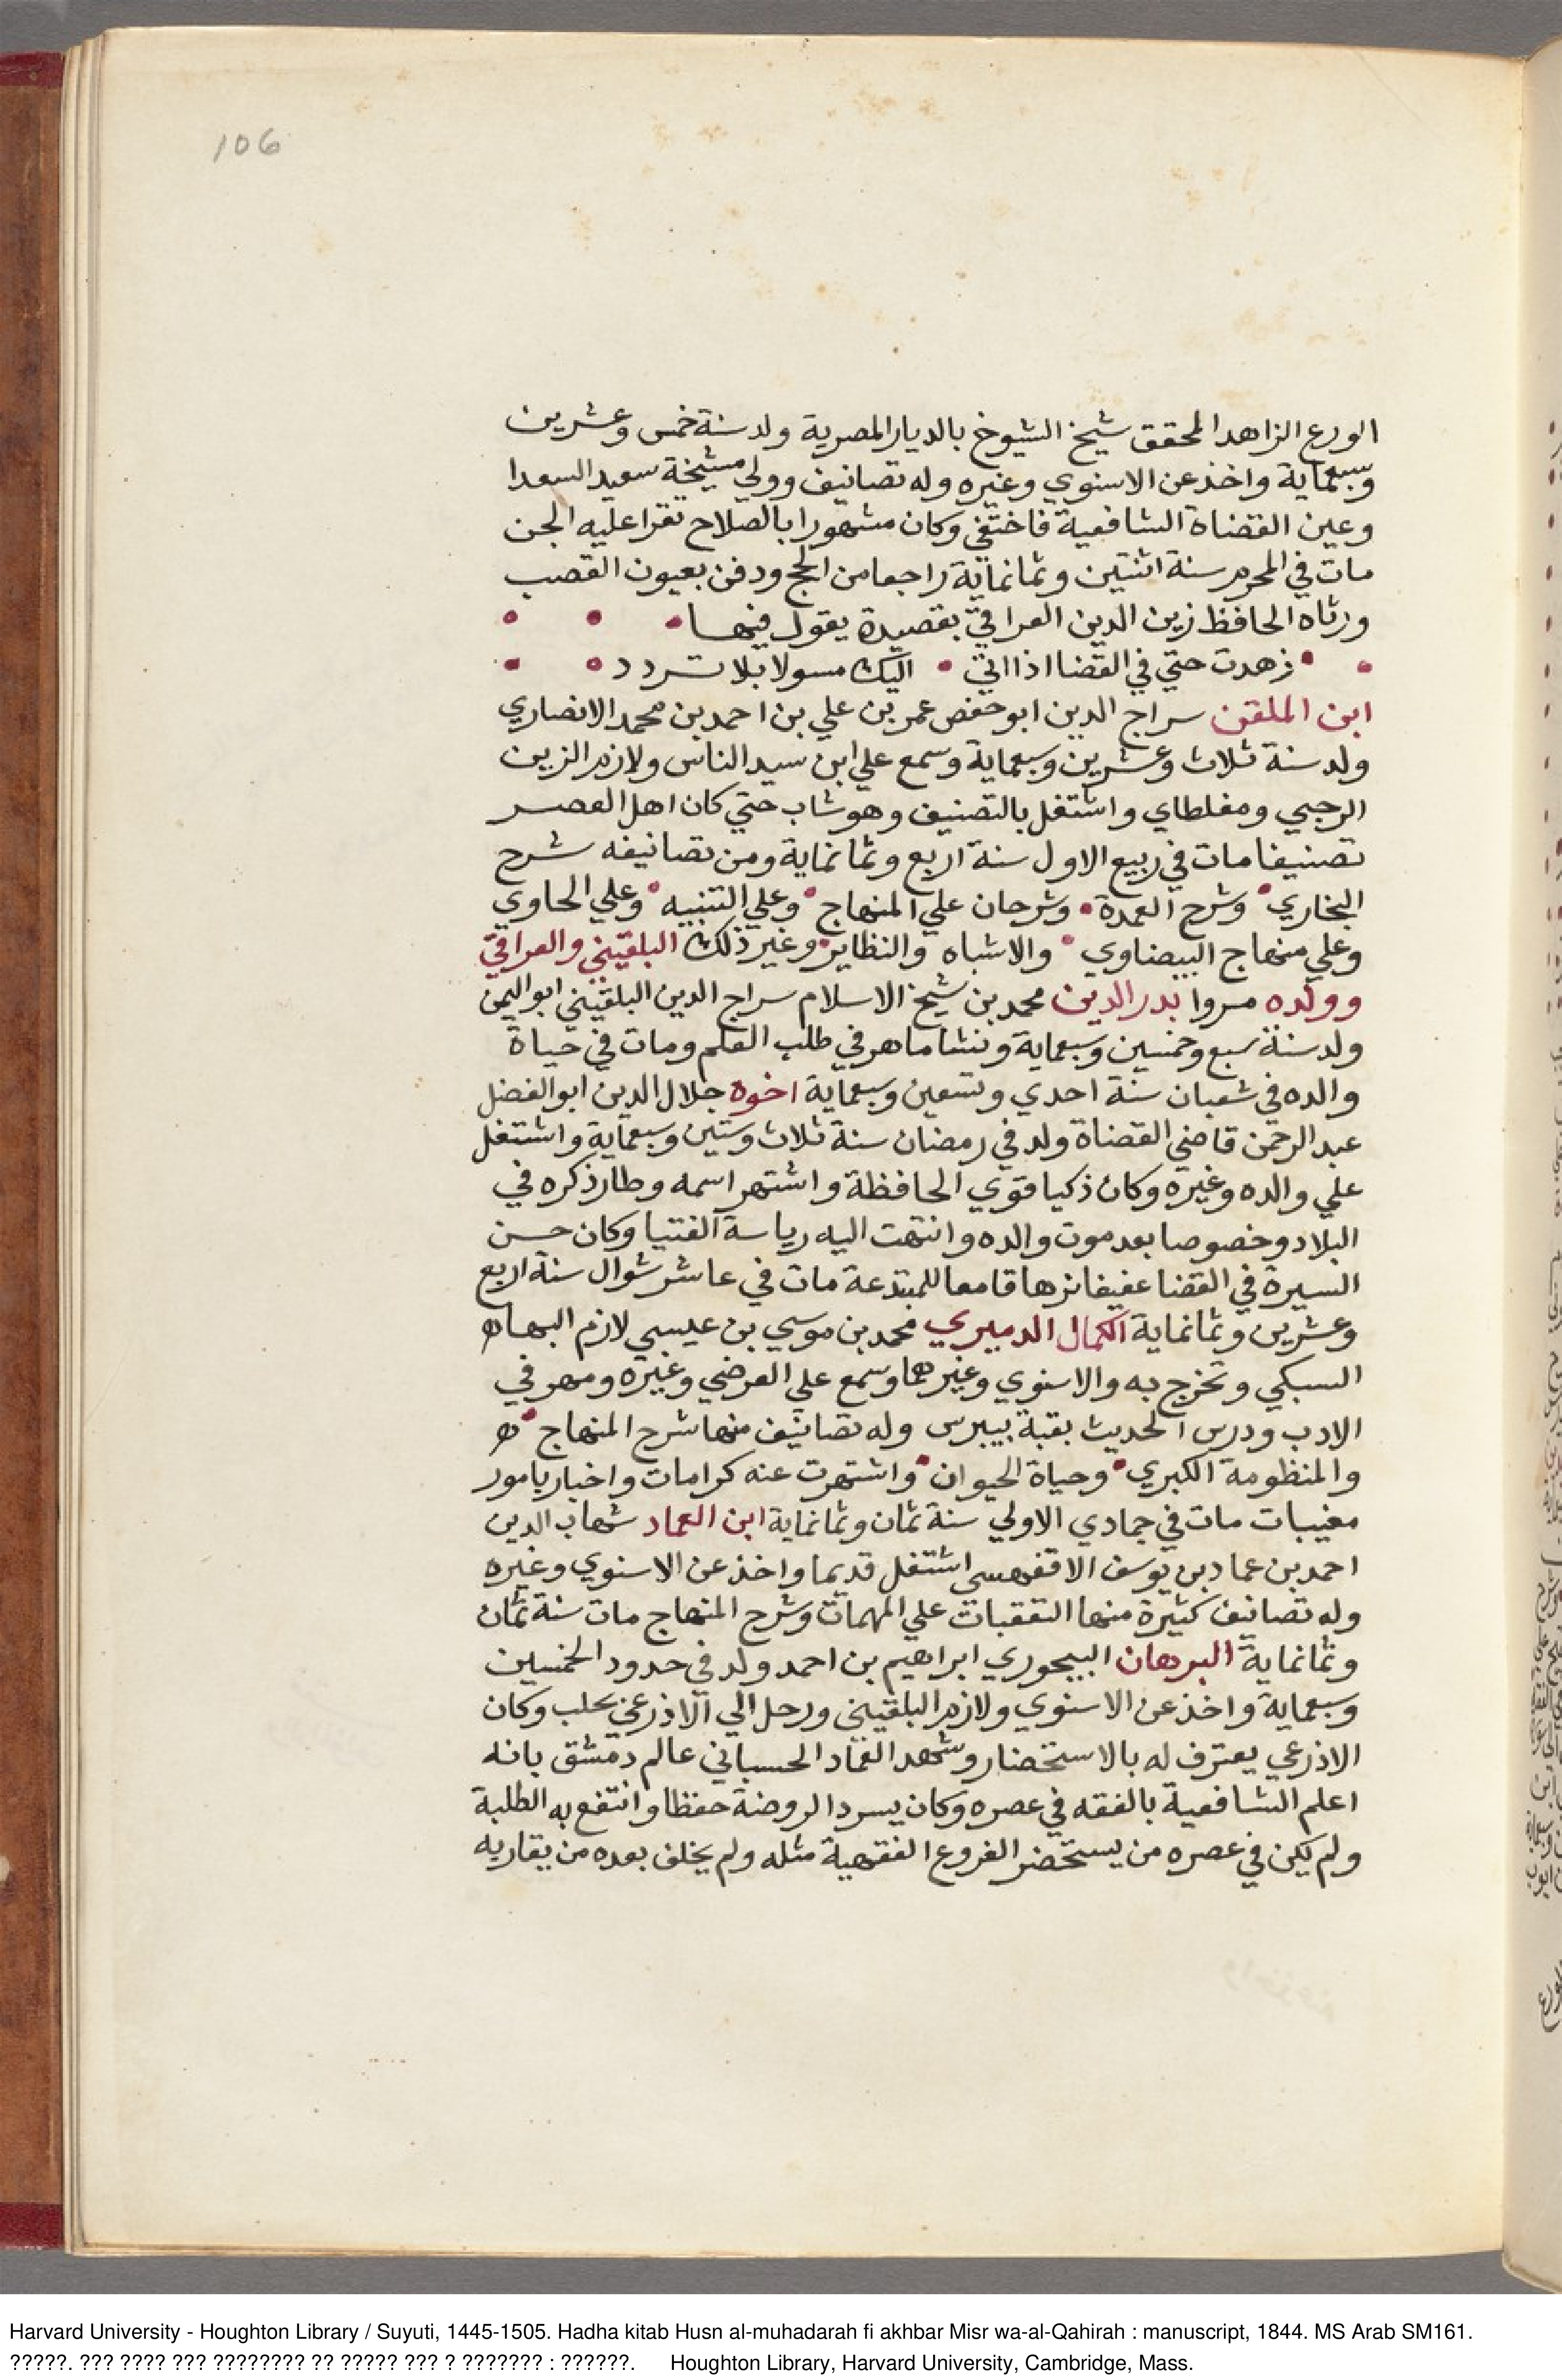 106
الورع الزاهد المحقق شيخ الشيوخ بالديار المصرية ولد سنة خمس وعشرين
وسبعماية واخذ عن الاسنوي وغيره وله تصانيف وولي مشيخة سعيد السعدا
وعين القضاة الشافعية فاختفي وكان مشهورا بالصلاح تقرا عليه الجن
مات في المحرم سنة اثنتين وثمانماية راجعا من الحج ودفن بعيون القصب
ورثاه الحافظ زين الدين العراقي بقصيدة يقول فيها
زهدت حتي في القضا اذا اتي • اليك مسولا بلا تردد
ابن الملقن سراج الدين ابو حفص عمر بن علي بن احمد بن محمد الانصاري
ولد سنة ثلاث وعشرين وسبعماية وسمع علي ابن سيد الناس ولازم الزين
الرحبي ومغلطاي واشتغل بالتصنيف وهو شاب حتي كان اهل العصر
تصنيفا مات في ربيع الاول سنة اربع وثمانماية ومن تصانيفه شرح
البخاري • وشرح العمدة • وشرحان علي المنهاج • وعلي التنبيه • وعلي الحاوي
وعلي منهاج البيضاوي • والاشباه والنظاير • وغير ذلك البلقيني والعراقي
وولده مروا بدر الدين محمد بن شيخ الاسلام سراج الدين البلقيني ابو اليمن
ولد سنة سبع وخمسين وسبعماية ونشا ماهر في طلب العلم ومات في حياة
والده في شعبان سنة احدي وتسعين وسبعماية اخوه جلال الدين ابو الفضل
عبد الرحمن قاضي القضاة ولد في رمضان سنة ثلاث وستين وسبعماية واشتغل
علي والده وغيره وكان ذكيا قوي الحافظة واشتهر اسمه وطار ذكره في
البلاد وخصوصا بعد موت والده وانتهت اليه رياسة الفتيا وكان حسن
السيرة في القضا عفيفا نزها قامعا للمبتدعة مات في عاشر شوال سنة اربع
وعشرين وثمانماية الكمال الدميري محمد بن موسي بن عيسي لازم البها
السبكي وتخرج به والاسنوي وغيرهما وسمع علي العرضي وغيره ومهر في
الادب ودرس الحديث بقبة بيبرس وله تصانيف منها شرح المنهاج •
والمنظومة الكبري • وحياة الحيوان • واشتهرت عنه كرامات واخبار بامور
مغيبات مات في جمادي الاولي سنة ثمان وثمانماية ابن العماد شهاب الدين
احمد بن عماد بن يوسف الاقفهسي اشتغل قديما واخذ عن الاسنوي وغيره
وله تصانيف كثيرة منها التعقبات علي المهمات وشرح المنهاج مات سنة ثمان
وثمانماية البرهان البيجوري ابراهيم بن احمد ولد في حدود الخمسين
وسبعماية واخذ عن الاسنوي ولازم البلقيني ورحل الي الاذرعي بحلب وكان
الاذرعي يعترف له بالاستحضار وشهد العماد الحسباني عالم دمشق بانه
اعلم الشافعية بالفقه في عصره وكان يسرد الروضة حفظا وانتفع به الطلبة
ولم يكن في عصره من يستحضر الفروع الفقهية مثله ولم يخلف بعده من يقاربه
Harvard University - Houghton Library / Suyuti, 1445-1505. Hadha kitab Husn al-muhadarah fi akhbar Misr wa-al-Qahirah : manuscript, 1844. MS Arab SM161.
?????. ??? ???? ??? ???????? ?? ????? ??? ? ??????? : ??????. Houghton Library, Harvard University, Cambridge, Mass.